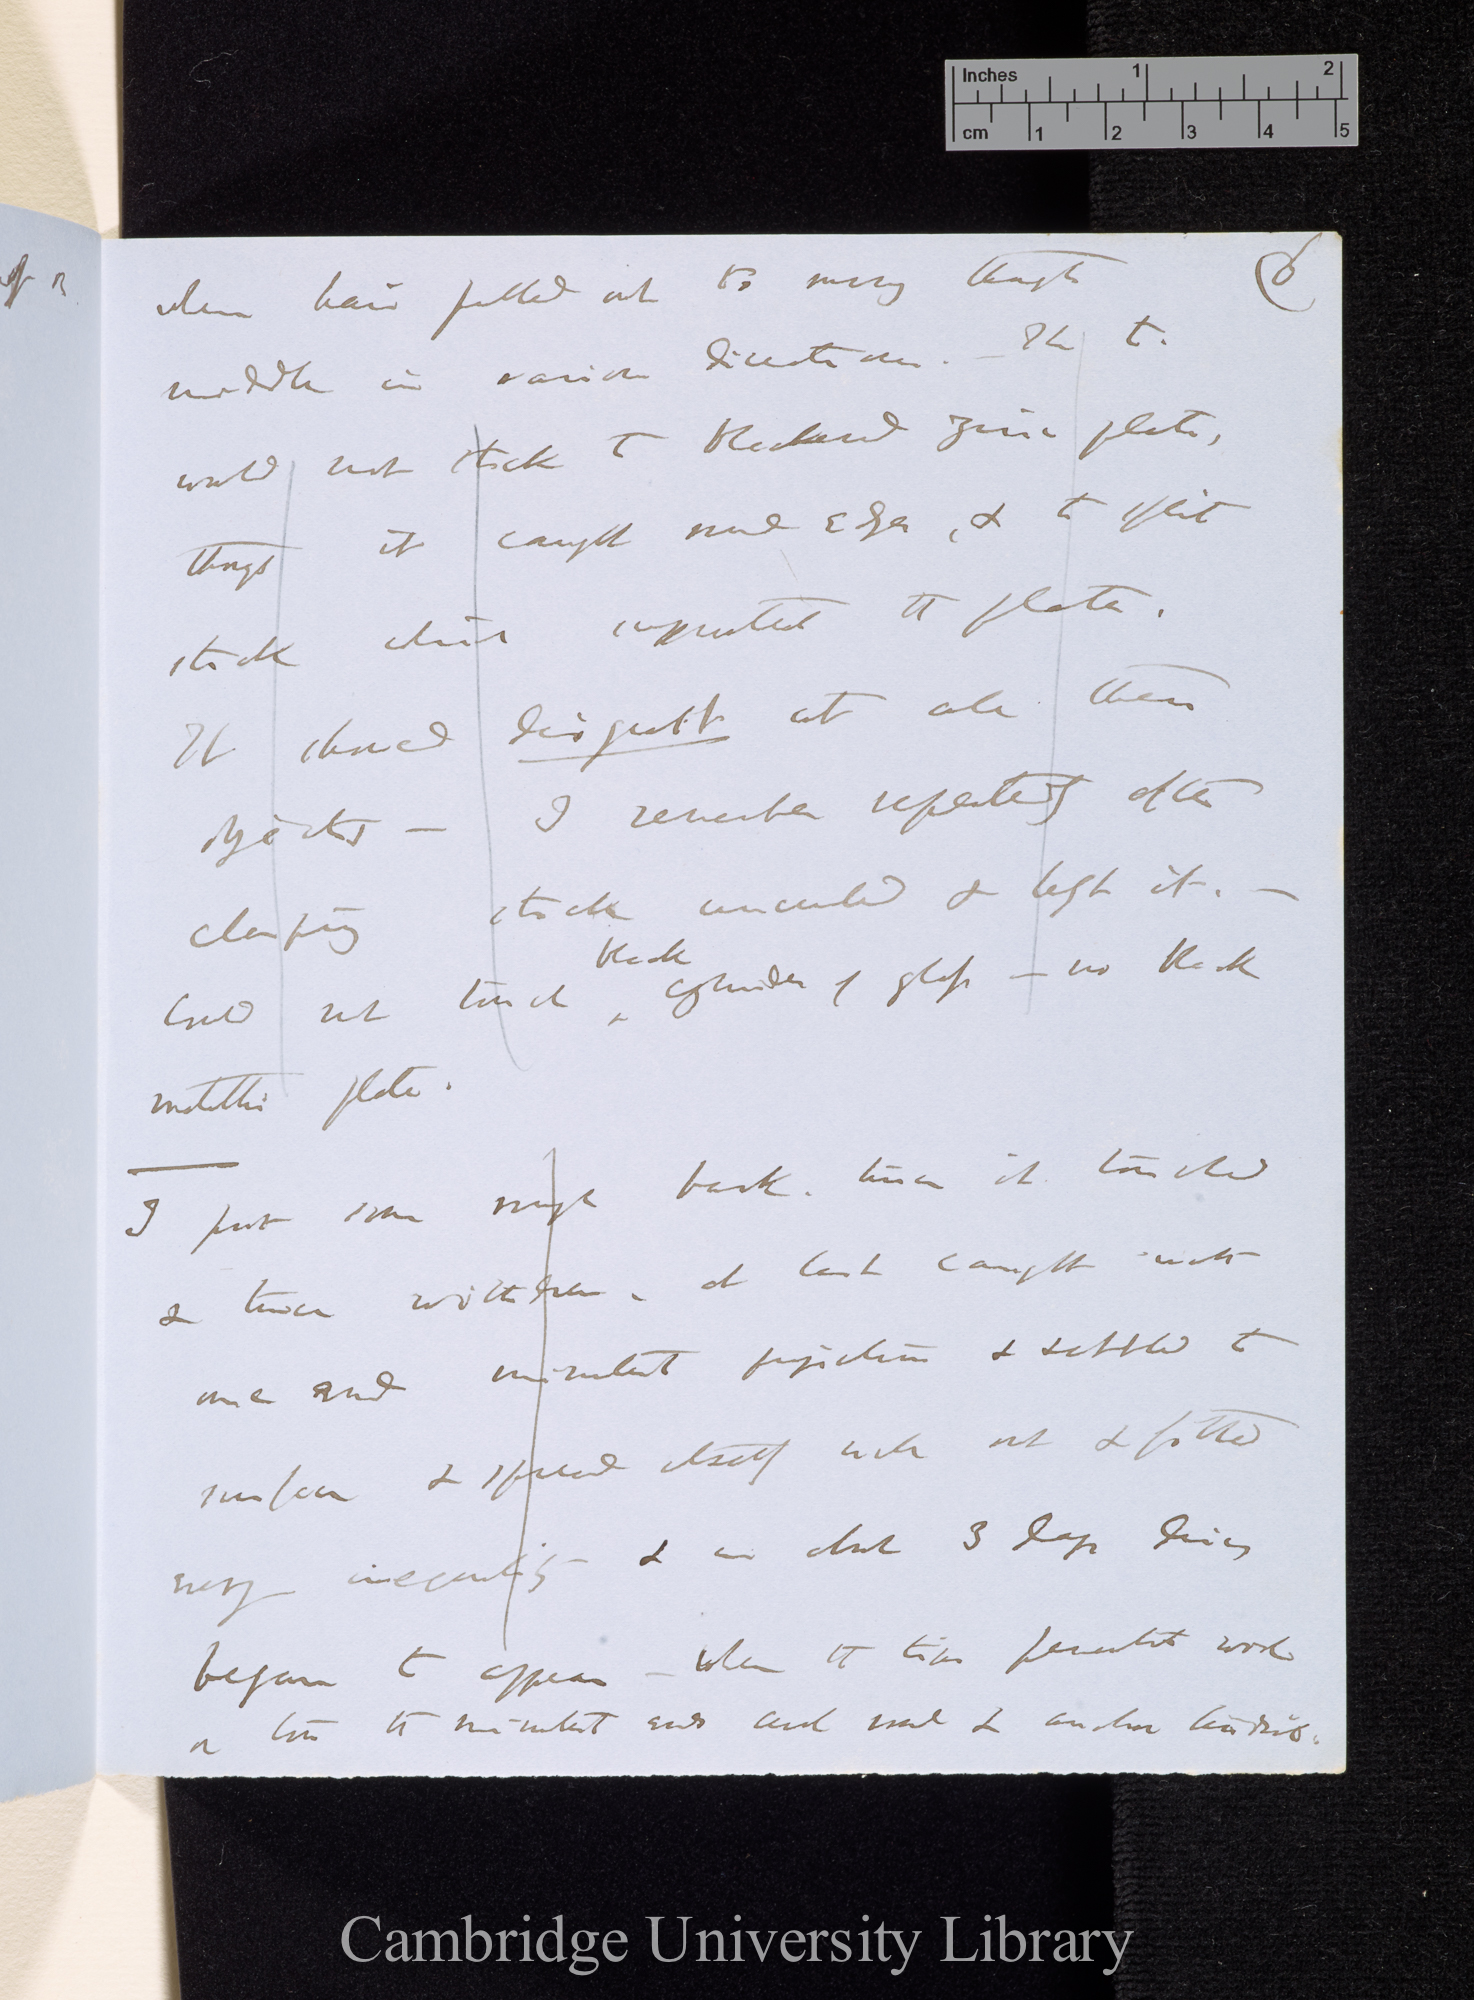 Inches 1 2
cm 1 2 3 4 5
6
when hair pulled out to
middle in various directions. — The t.
would not stick to blackened zinc plate,
though it caught round edges, & to split
stick which supported the plate.
It showed disgust at all these
objects — I remember repeatedly after
clasping stick uncurled & left it. —
black
Could not touch ‸ cylinder of glass — no black
metallic plate.
I put some rough bark. twice it touched
& twice withdrew, at last caught with
one end minutest projection & settled to
surface & spread itself out & fitted
every inequality & in about 3 days discs
began to appear — when the tips penetrate
the minutest ends curl round &
Cambridge University Library